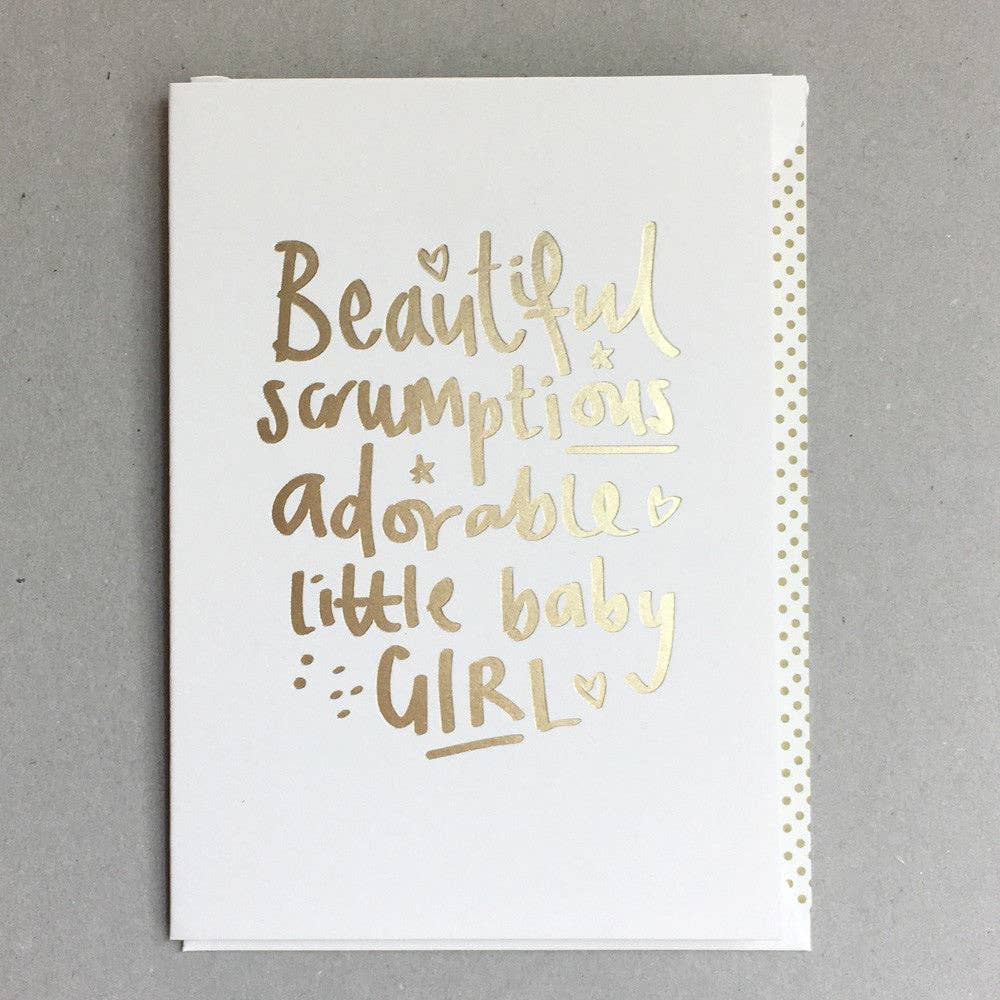 Beautiful
scrumptious
adorable
little baby
GIRL